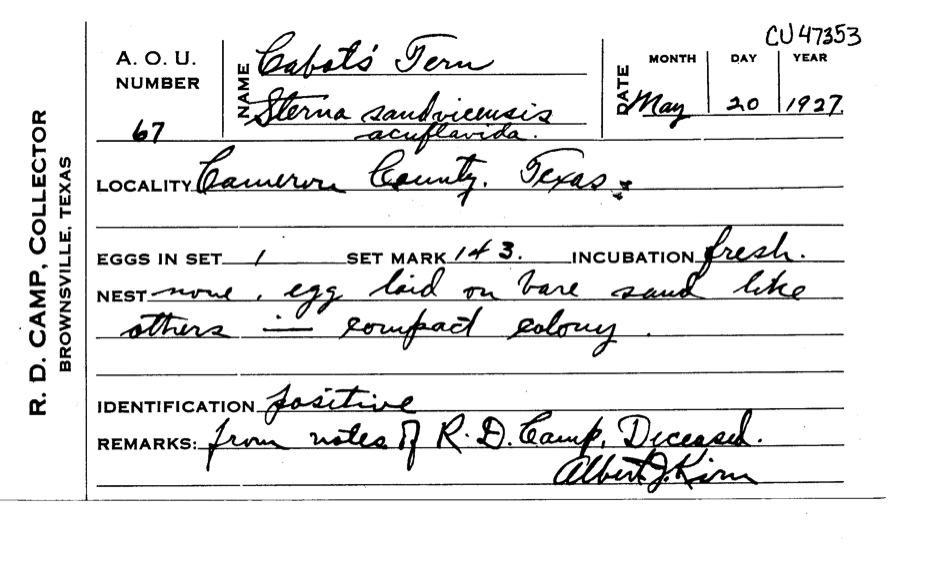 CU47353
A. O. U.
NUMBER
67
NAME
Cabot's Tern
Sterna sandvicensis
acuflavida.
DATE
MONTH DAY YEAR
May 20 1927.
R. D. CAMP, COLLECTOR
BROWNSVILLE, TEXAS
LOCALITY Cameron County. Texas:
EGGS IN SET 1 SET MARK 143. INCUBATION fresh.
NEST none. egg laid on bare sand like
others — compact colony.
IDENTIFICATION positive
REMARKS: from notes of R. D. Camp, Deceased.
Albert J. Kirn